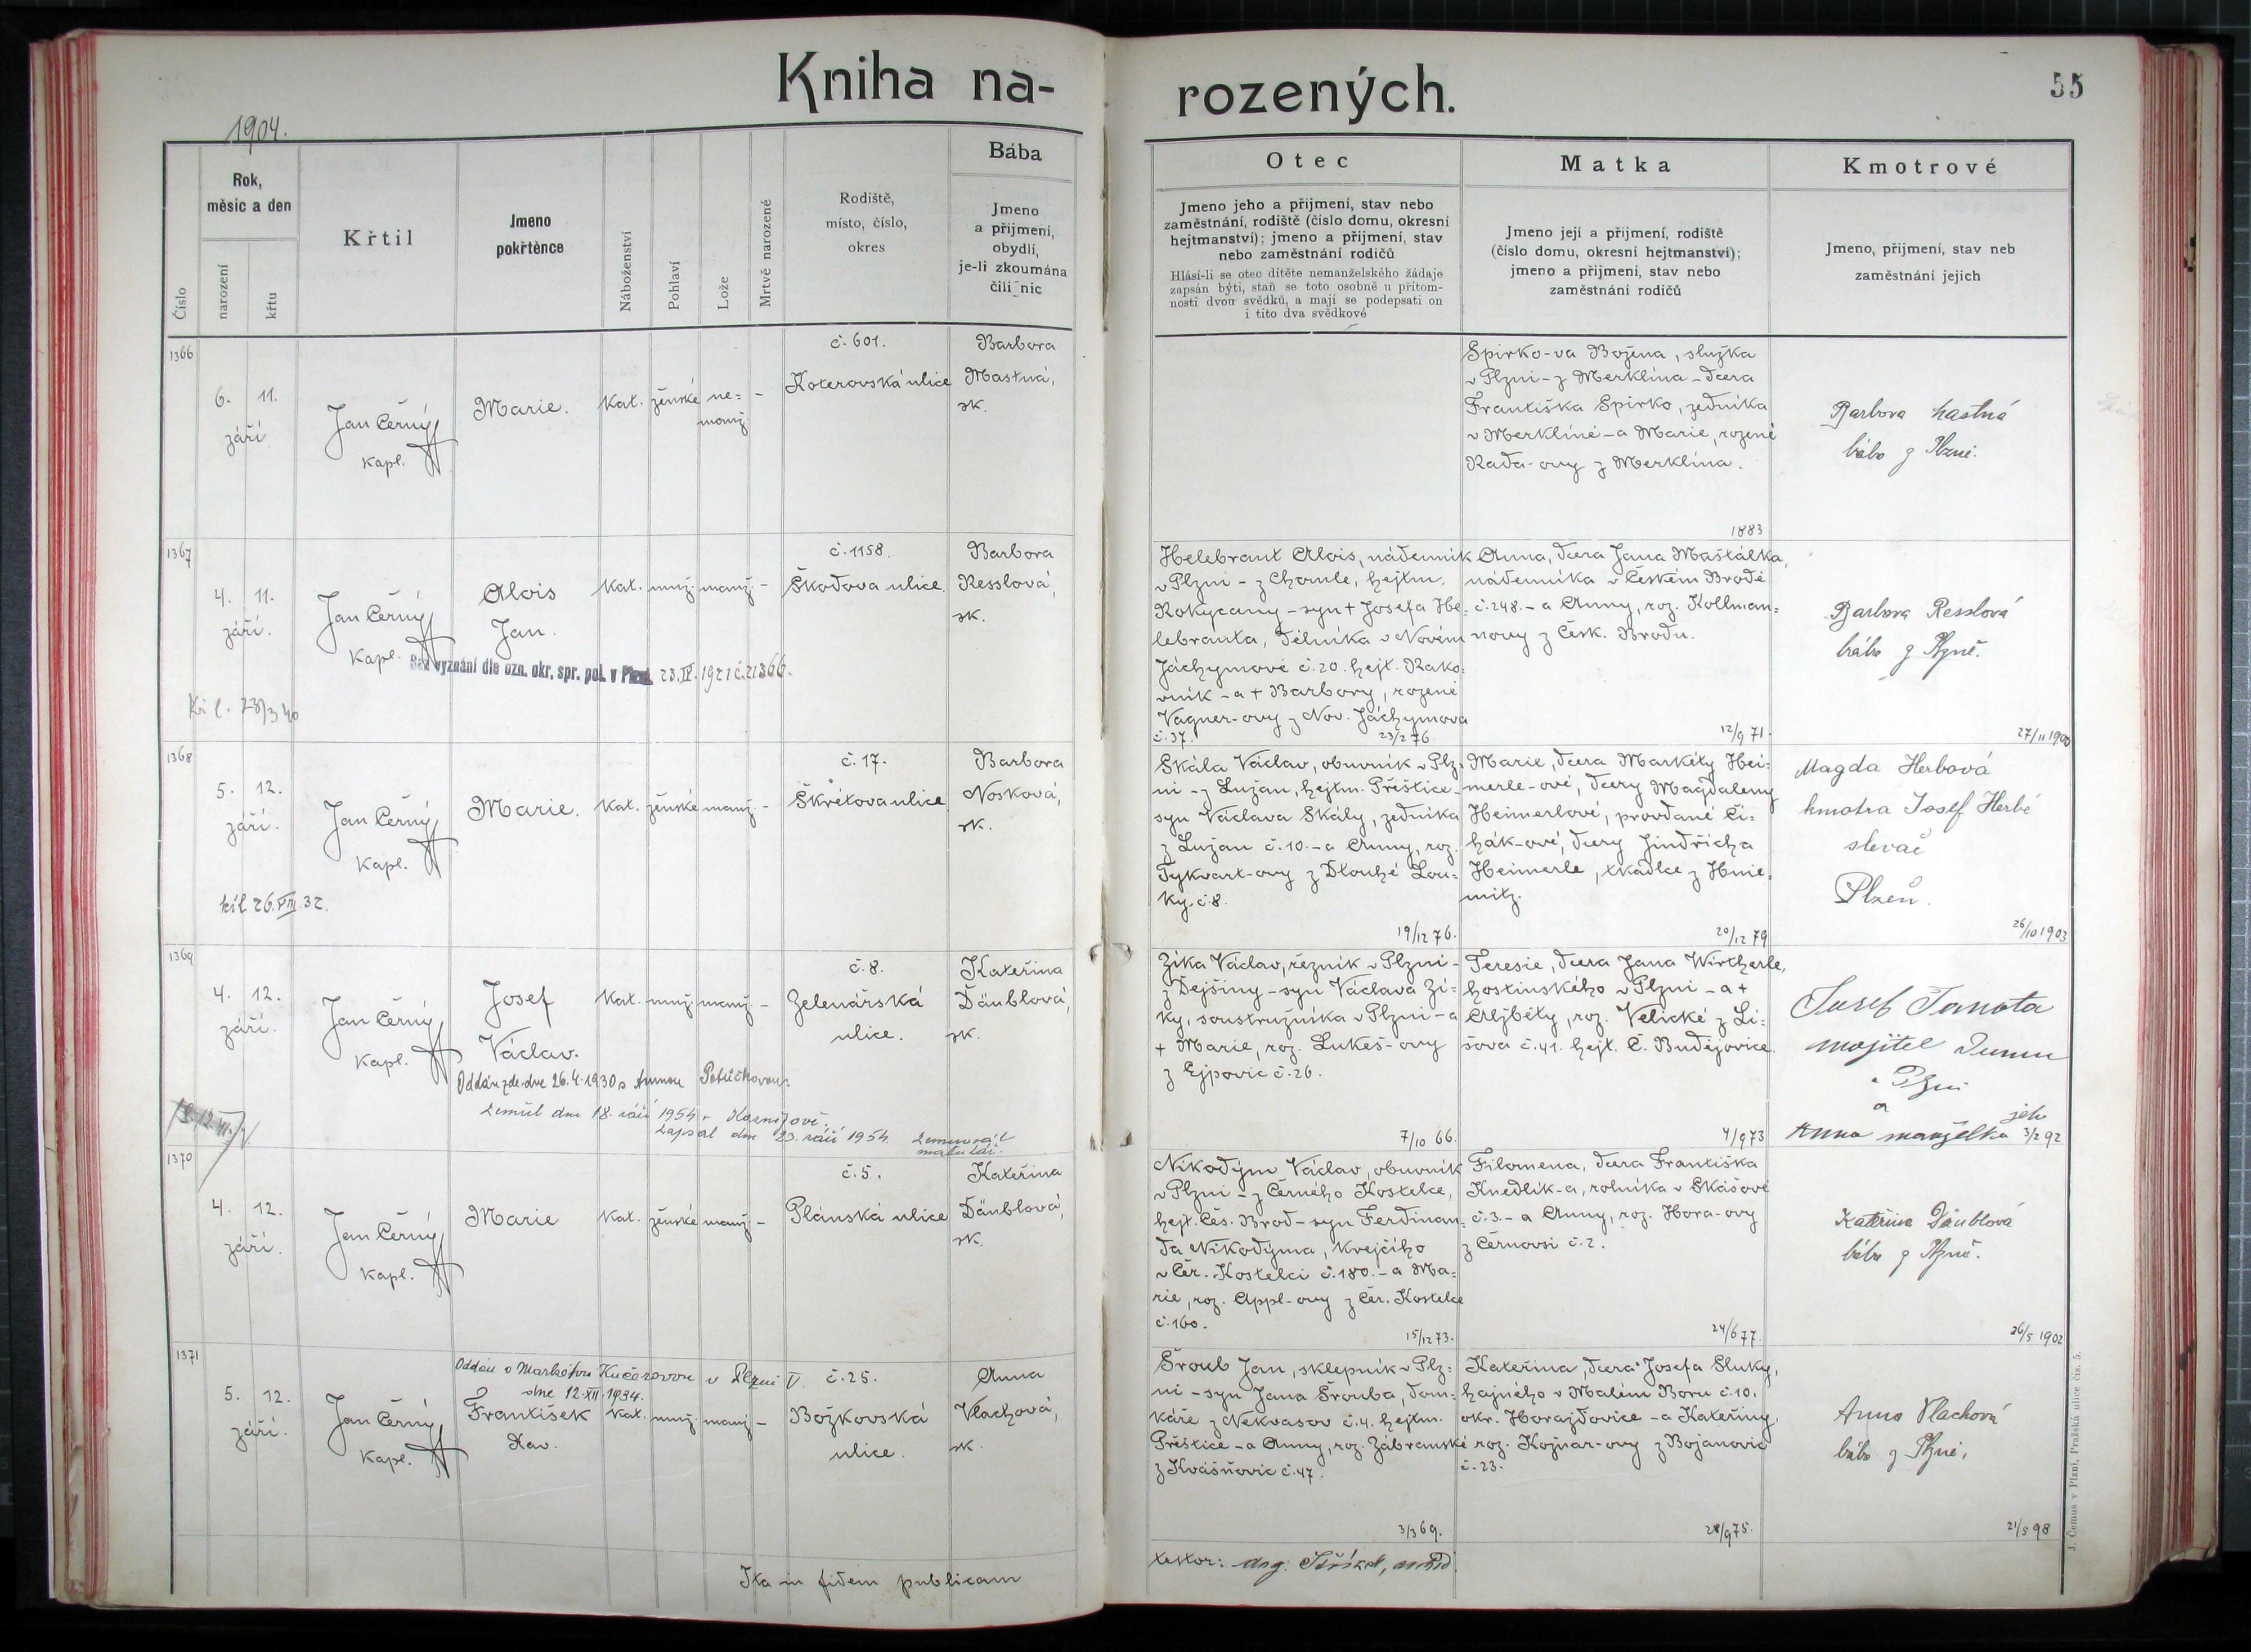 Kniha na-
rozených.
55
1904.
Číslo
Rok,
měsíc a den
narození
křtu
Křtil
Jmeno
pokřtěnce
Náboženství
Pohlaví
Lože
Mrtvě narozené
Rodiště,
místo, číslo,
okres
Bába
Jmeno
a přijmení,
obydlí,
je-li zkoumána
čili nic
Otec
Jmeno jeho a přijmení, stav nebo
zaměstnání, rodiště (číslo domu, okresní
hejtmanství); jmeno a přijmení, stav
nebo zaměstnání rodičů
Hlásí-li se otec dítěte nemanželského žádaje
zapsán býti, staň se toto osobně u přítom-
nosti dvou svědků, a mají se podepsati on
i tito dva svědkové
Matka
Jmeno její a přijmení, rodiště
(číslo domu, okresní hejtmanství);
jmeno a přijmení, stav nebo
zaměstnání rodičů
Kmotrové
Jmeno, přijmení, stav neb
zaměstnání jejich
1366
6. 11.
září
Jan Černý
Kapl.
Marie.
Kat. ženské ne=
manž. -
č. 601.
Koterovská ulice
Barbora
Mastná,
zk.
Spirko-va Božena, služka
v Plzni - z Merklína - dcera
Františka Spirko, zedníka
v Merklíně - a Marie, rozené
Kada-ovy z Merklína.
1883
Barbora Mastná
bába z Plzně.
1367
4. 11.
září.
Jan Černý
Kapl.
Alois
Jan.
Kat. muž. manž. -
Bez vyznání dle ozn. okr. spr. pol. v Plzni 23.IV.1921 č.21366.
č. 1158.
Škodova ulice.
Barbora
Resslová,
zk.
Helebrant Alois, nádenník
v Plzni - z Chomle, hejtm.
Rokycany - syn + Josefa He=
lebranta, dělníka v Novém
Jáchymově č. 20. hejt. Rako=
vník - a + Barbory, rozené
Vagner-ovy z Nov. Jáchymova
č. 37. 23/2 76.
Anna, dcera Jana Maštálka,
nádenníka v Českém Brodě
č. 248. - a Anny, roz. Kollman=
novy z Česk. Brodu.
12/9 71.
Barbora Resslová
bába z Plzně.
27/11 1900
1368
5. 12.
září.
Jan Černý
Kapl.
Marie.
Kat. ženské manž. -
26.VIII.32.
č. 17.
Škrétova ulice
Barbora
Nosková,
zk.
Skála Václav, obuvník v Plz=
ni - z Lužan, hejtm. Přeštice -
syn Václava Skály, zedníka
z Lužan č. 10. - a Anny, roz.
Tykvart-ovy z Dlouhé Lou=
ky č. 8.
19/12 76.
Marie, dcera Markéty Hei=
merle-ové, dcery Magdaleny
Heimerlové, provdané Či=
hák-ové, dcery Jindřicha
Heimerle, tkadlce z Hnie=
mitz.
20/12 79
Magda Herbová
kmotra Josef Herbé
slevač
Plzeň.
26/10 1903
1369
4. 12.
září.
Jan Černý
Kapl.
Josef
Václav.
Kat. muž. manž. -
Oddán zde dne 26.4.1930 s Annou
Zemřel dne 18. září 1954
Zapsal dne 23. září 1954.
č. 8.
Zelenářská
ulice.
Kateřina
Däublová,
zk.
Zika Václav, řezník v Plzni -
z Dejšiny - syn Václava Zi=
ky, soustružníka v Plzni - a
+ Marie, roz. Lukeš-ovy
z Ejpovic č. 26.
7/10 66.
Teresie, dcera Jana Wirtherle,
hostinského v Plzni - a +
Alžběty, roz. Velické z Li=
šova č. 41. hejt. Č. Budějovice.
4/9 73
Josef
majitel domu
v Plzni
a
Anna manželka jeho 3/2 92
1370
4. 12.
září.
Jan Černý
Kapl.
Marie
Kat. ženské manž. -
č. 5.
Plánská ulice
Kateřina
Däublová,
zk.
Nikodým Václav, obuvník
v Plzni - z Černého Kostelce,
hejt. Čes. Brod - syn Ferdinan=
da Nikodýma, krejčího
v Čer. Kostelci č. 180. - a Ma=
rie, roz. Appl-ovy z Čer. Kostelce
č. 160.
15/12 73.
Filomena, dcera Františka
Knedlík-a, rolníka v Skášově
č. 3. - a Anny, roz. Hora-ovy
z Černovsi č. 2.
24/6 77.
Kateřina Däublová
bába z Plzně.
26/5 1902
1371
5. 12.
září.
Jan Černý
Kapl.
Oddán s Markétou Kučerovou v Plzni V.
dne 12.XII.1934.
František
Xav.
Kat. muž. manž. -
č. 25.
Božkovská
ulice.
Anna
Vlachová,
zk.
Šroub Jan, sklepník v Plz=
ni - syn Jana Šrouba, dom=
káře z Nekvasov č. 4. hejtm.
Přeštice - a Anny, roz. Zábranské
z Kvášňovic č. 47.
3/3 69.
Kateřina, dcera Josefa Sluky,
hajného v Malém Boru č. 10.
okr. Horažďovice - a Kateřiny,
roz. Kožnar-ovy z Bojanovic
č. 23.
28/9 75.
Anna Vlachová
bába z Plzně.
21/5 98
Ita in fidem publicam
testor:
J. Čemus v Plzni, Pražská ulice čís. 5.